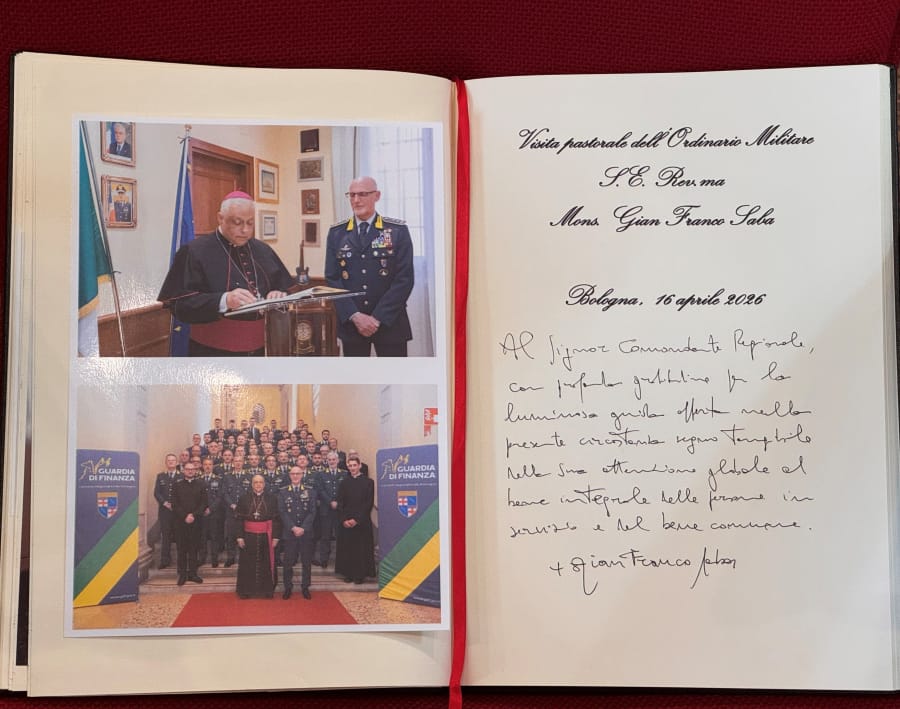 GUARDIA
DI FINANZA
GUARDIA
DI FINANZA
Visita pastorale dell'Ordinario Militare
S.E. Rev.ma
Mons. Gian Franco Saba
Bologna, 16 aprile 2026
Al Signor Comandante Regionale,
con profonda gratitudine per la
luminosa guida offerta nella
presente circostanza segno tangibile
della Sua attenzione globale al
bene integrale delle persone in
servizio e del bene comune.
+ Gian Franco Saba